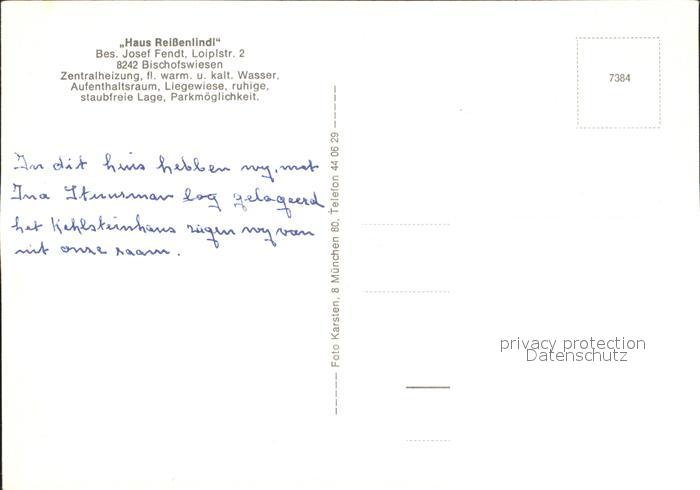 „Haus Reißenlindl“
Bes. Josef Fendt, Loiplstr. 2
8242 Bischofswiesen
Zentralheizung, fl. warm. u. kalt. Wasser,
Aufenthaltsraum, Liegewiese, ruhige,
staubfreie Lage, Parkmöglichkeit.
7384
In dit huis hebben wy, met
Ina log gelogeerd
het Kehlsteinhaus zagen wy van
uit onze raam.
Foto Karsten, 8 München 80, Telefon 44 06 29
privacy protection
Datenschutz